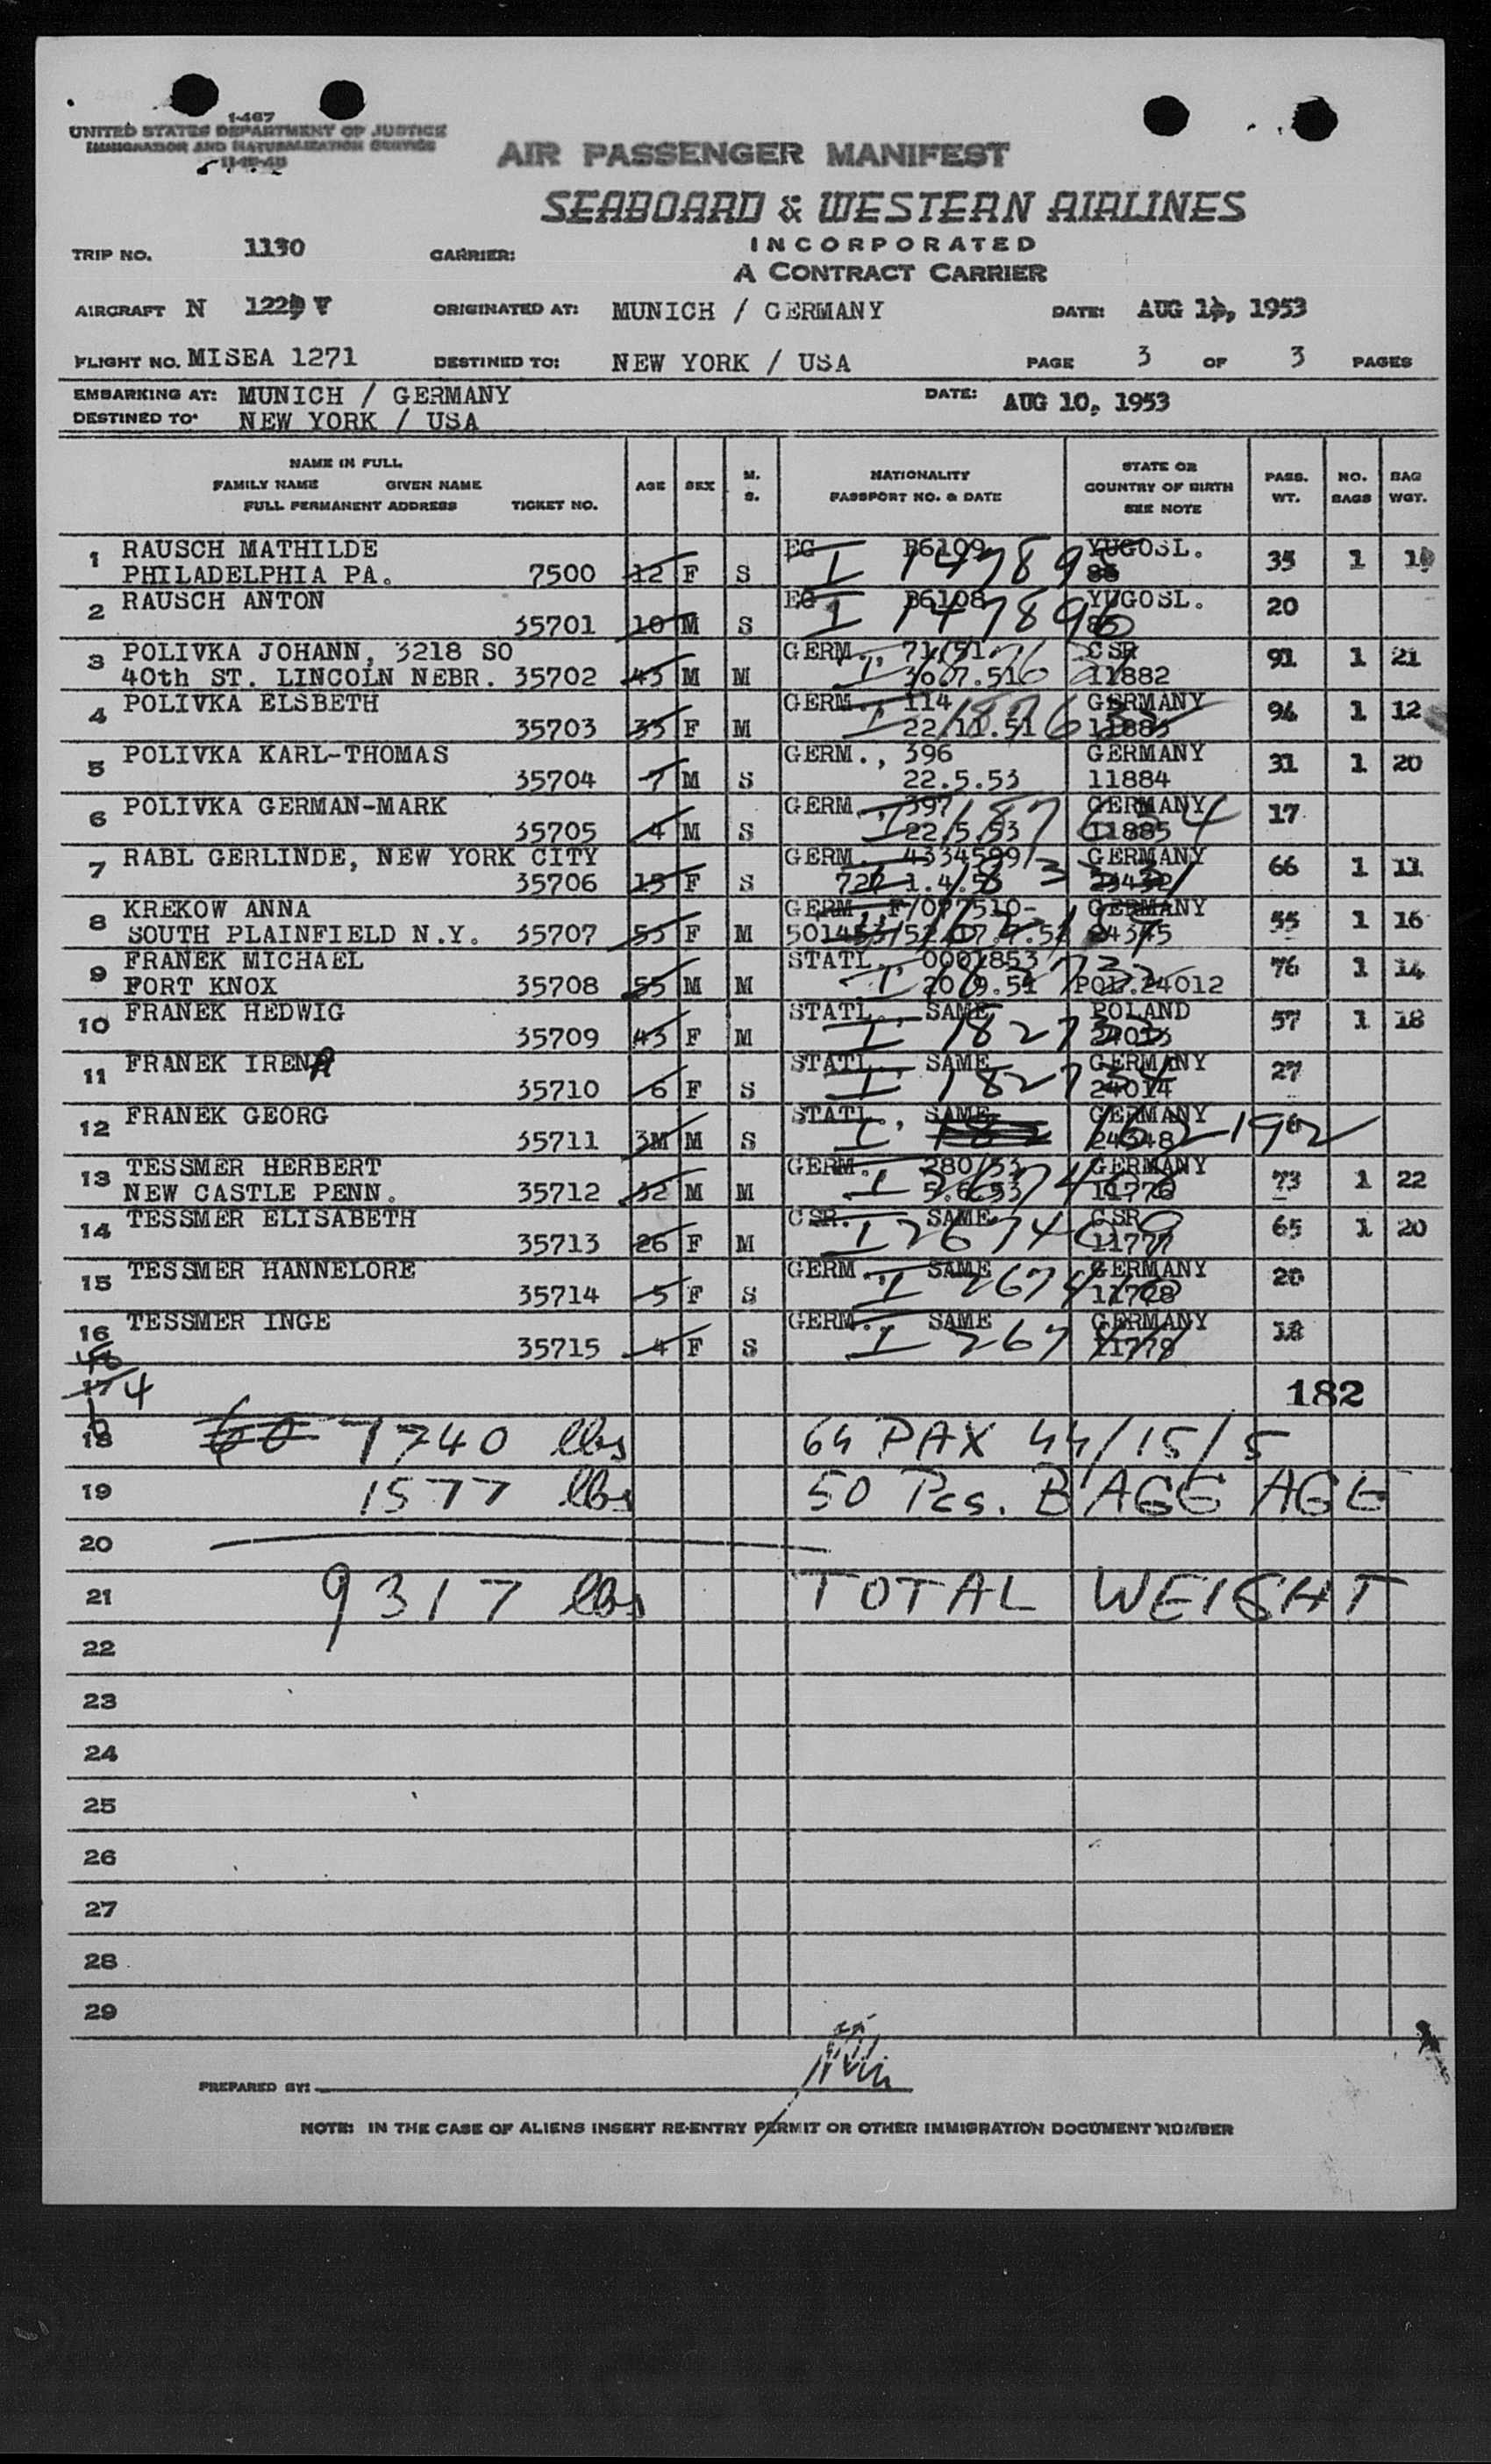 1-467
UNITED STATES DEPARTMENT OF JUSTICE
IMMIGRATION AND NATURALIZATION SERVICE
AIR PASSENGER MANIFEST
SEABOARD & WESTERN AIRLINES
INCORPORATED
A CONTRACT CARRIER
TRIP NO. 1130 CARRIER:
AIRCRAFT N ORIGINATED AT: MUNICH / GERMANY DATE: AUG 1953
FLIGHT NO. MISEA 1271 DESTINED TO: NEW YORK / USA PAGE 3 OF 3 PAGES
EMBARKING AT: MUNICH / GERMANY DATE: AUG 10, 1953
DESTINED TO: NEW YORK / USA
NAME IN FULL
FAMILY NAME GIVEN NAME
FULL PERMANENT ADDRESS TICKET NO. AGE SEX M. S. NATIONALITY PASSPORT NO. & DATE STATE OR COUNTRY OF BIRTH SEE NOTE PASS. WT. NO. BAGS BAG WGT.
1 RAUSCH MATHILDE EG B6109 YUGOSL. 35 1
PHILADELPHIA PA. 7500 12 F S I
2 RAUSCH ANTON EG B6108 YUGOSL. 20
35701 10 M S I 147896
3 POLIVKA JOHANN, 3218 SO GERM., 71/51 CSR 91 1 21
40th ST. LINCOLN NEBR. 35702 43 M M 30.7.51 11882
4 POLIVKA ELSBETH GERM., 114 GERMANY 94 1 12
35703 33 F M 22.11.51 11883
5 POLIVKA KARL-THOMAS GERM., 396 GERMANY 31 1 20
35704 7 M S 22.5.53 11884
6 POLIVKA GERMAN-MARK GERM., 397 GERMANY 17
35705 4 M S 22.5.53 11885
7 RABL GERLINDE, NEW YORK CITY GERM. 4334599/ GERMANY 66 1 11
35706 F S 1.4.53
8 KREKOW ANNA GERM F/OP7510- GERMANY 55 1 16
SOUTH PLAINFIELD N.Y. 35707 53 F M 24345
9 FRANEK MICHAEL STATL., 0001853 76 1 14
FORT KNOX 35708 55 M M 20.9.51 POL.24012
10 FRANEK HEDWIG STATL., SAME POLAND 57 1 18
35709 43 F M I 24013
11 FRANEK IRENA STATL., SAME GERMANY 27
35710 6 F S I 182734 24014
12 FRANEK GEORG STATL., SAME GERMANY
35711 3M M S I 24348
13 TESSMER HERBERT GERM. 280/53 GERMANY 73 1 22
NEW CASTLE PENN. 35712 32 M M I 5.6.53 11776
14 TESSMER ELISABETH CSR. SAME CSR 65 1 20
35713 26 F M I 11777
15 TESSMER HANNELORE GERM., SAME GERMANY 20
35714 5 F S I 11778
16 TESSMER INGE GERM., SAME GERMANY 18
35715 4 F S I 11779
17 4 182
18 7740 lbs 64 PAX 44/15/5
19 1577 lbs 50 Pcs. BAGGAGE
20
21 9317 lbs TOTAL WEIGHT
22
23
24
25
26
27
28
29
PREPARED BY:
NOTE: IN THE CASE OF ALIENS INSERT RE-ENTRY PERMIT OR OTHER IMMIGRATION DOCUMENT NUMBER